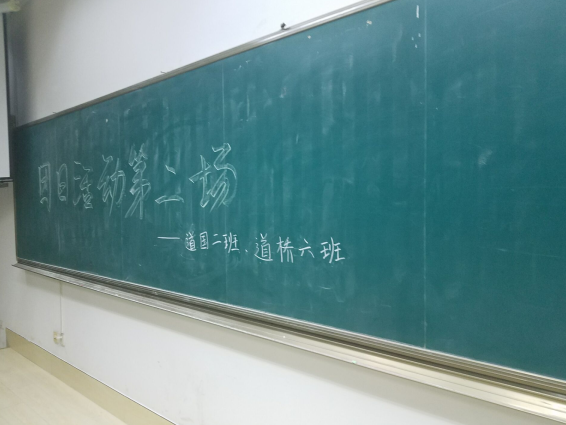 团日活动第二场
——道国二班、道桥六班